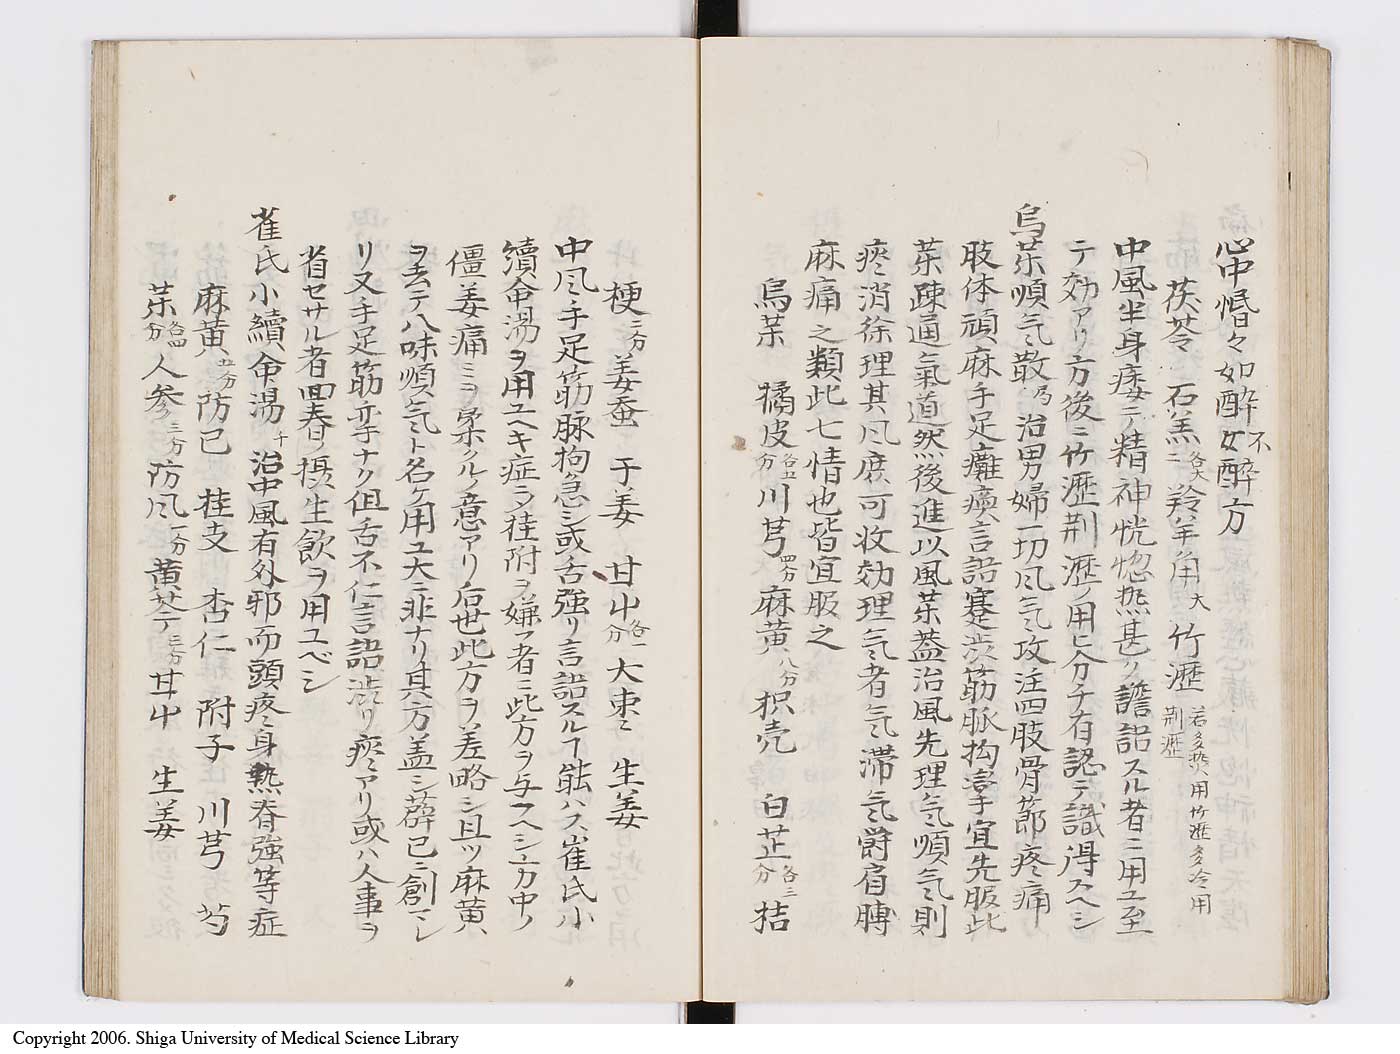 心中惛々如醉不如醉方
茯苓 石羔各大ニ 羚羊角大 竹瀝 荊瀝 若多煑用竹瀝多冷用
中風半身痿ニテ精神恍惚㷱甚タ譫語スル者ニ用ユ至
テ効アリ方後ニ竹瀝荊瀝ノ用ヒ分チ有認テ識得スヘシ
烏茱順气散乃治男婦一切风气攻注四肢骨莭疼痛
肢体頑麻手足癱瘓言語蹇渋筋脈拘害手宜先服此
茱疎通氣道然後進以風茱盖治風先理气順气則
痰消徐理其风庶可收効理气者气滞气欝肩膊
麻痛之類此七情也皆宜服之
烏茱 橘皮各五分 川芎四分 麻黄八分 枳壳 白芷各三分 桔
梗二分 姜蚕 于姜 甘屮各一分 大枣ニ 生姜
中风手足筋脉拘急シ或舌強リ言語スルヿ能ハス崔氏小
續命湯ヲ用ユヘキ症ヲ桂附ヲ嫌フ者ニ此方ヲ与フヘシ方中ノ
僵姜痛ミヲ柔クルノ意アリ后世此方ヲ差略シ且ツ麻黄
ヲ去テ八味順气ト名ケ用ユ大ニ非ナリ其方盖シ薜已ニ創マレ
リ又手足筋弃ナク伹舌不仁言語渋リ痰アリ或ハ人事ヲ
省セサル者回春ノ摂生飲ヲ用ユベシ
崔氏小續命湯千 治中風有外邪而頭疼身熱脊強等症
麻黄五分 防已 桂支 杏仁 附子 川芎 芍
茱各四分 人参三分 防风一分 黄芩三分 甘屮 生姜
Copyright 2006. Shiga University of Medical Science Library